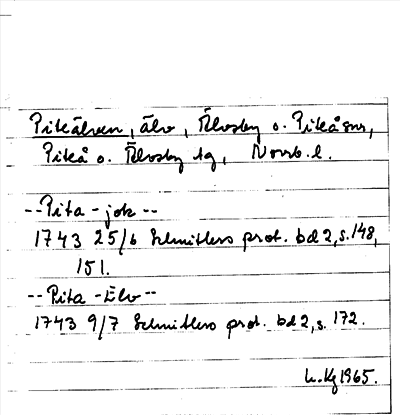 Piteälven, älv, Älvsby o. Piteå snr,
Piteå o. Älvsby tg, Norrb. l.
--Pita - jok --
1743 25/6 Schnitlers prot. bd 2, s. 148,
151.
-- Pita - Elv --
1743 9/7 Schnitlers prot. bd 2, s. 172.
1965.